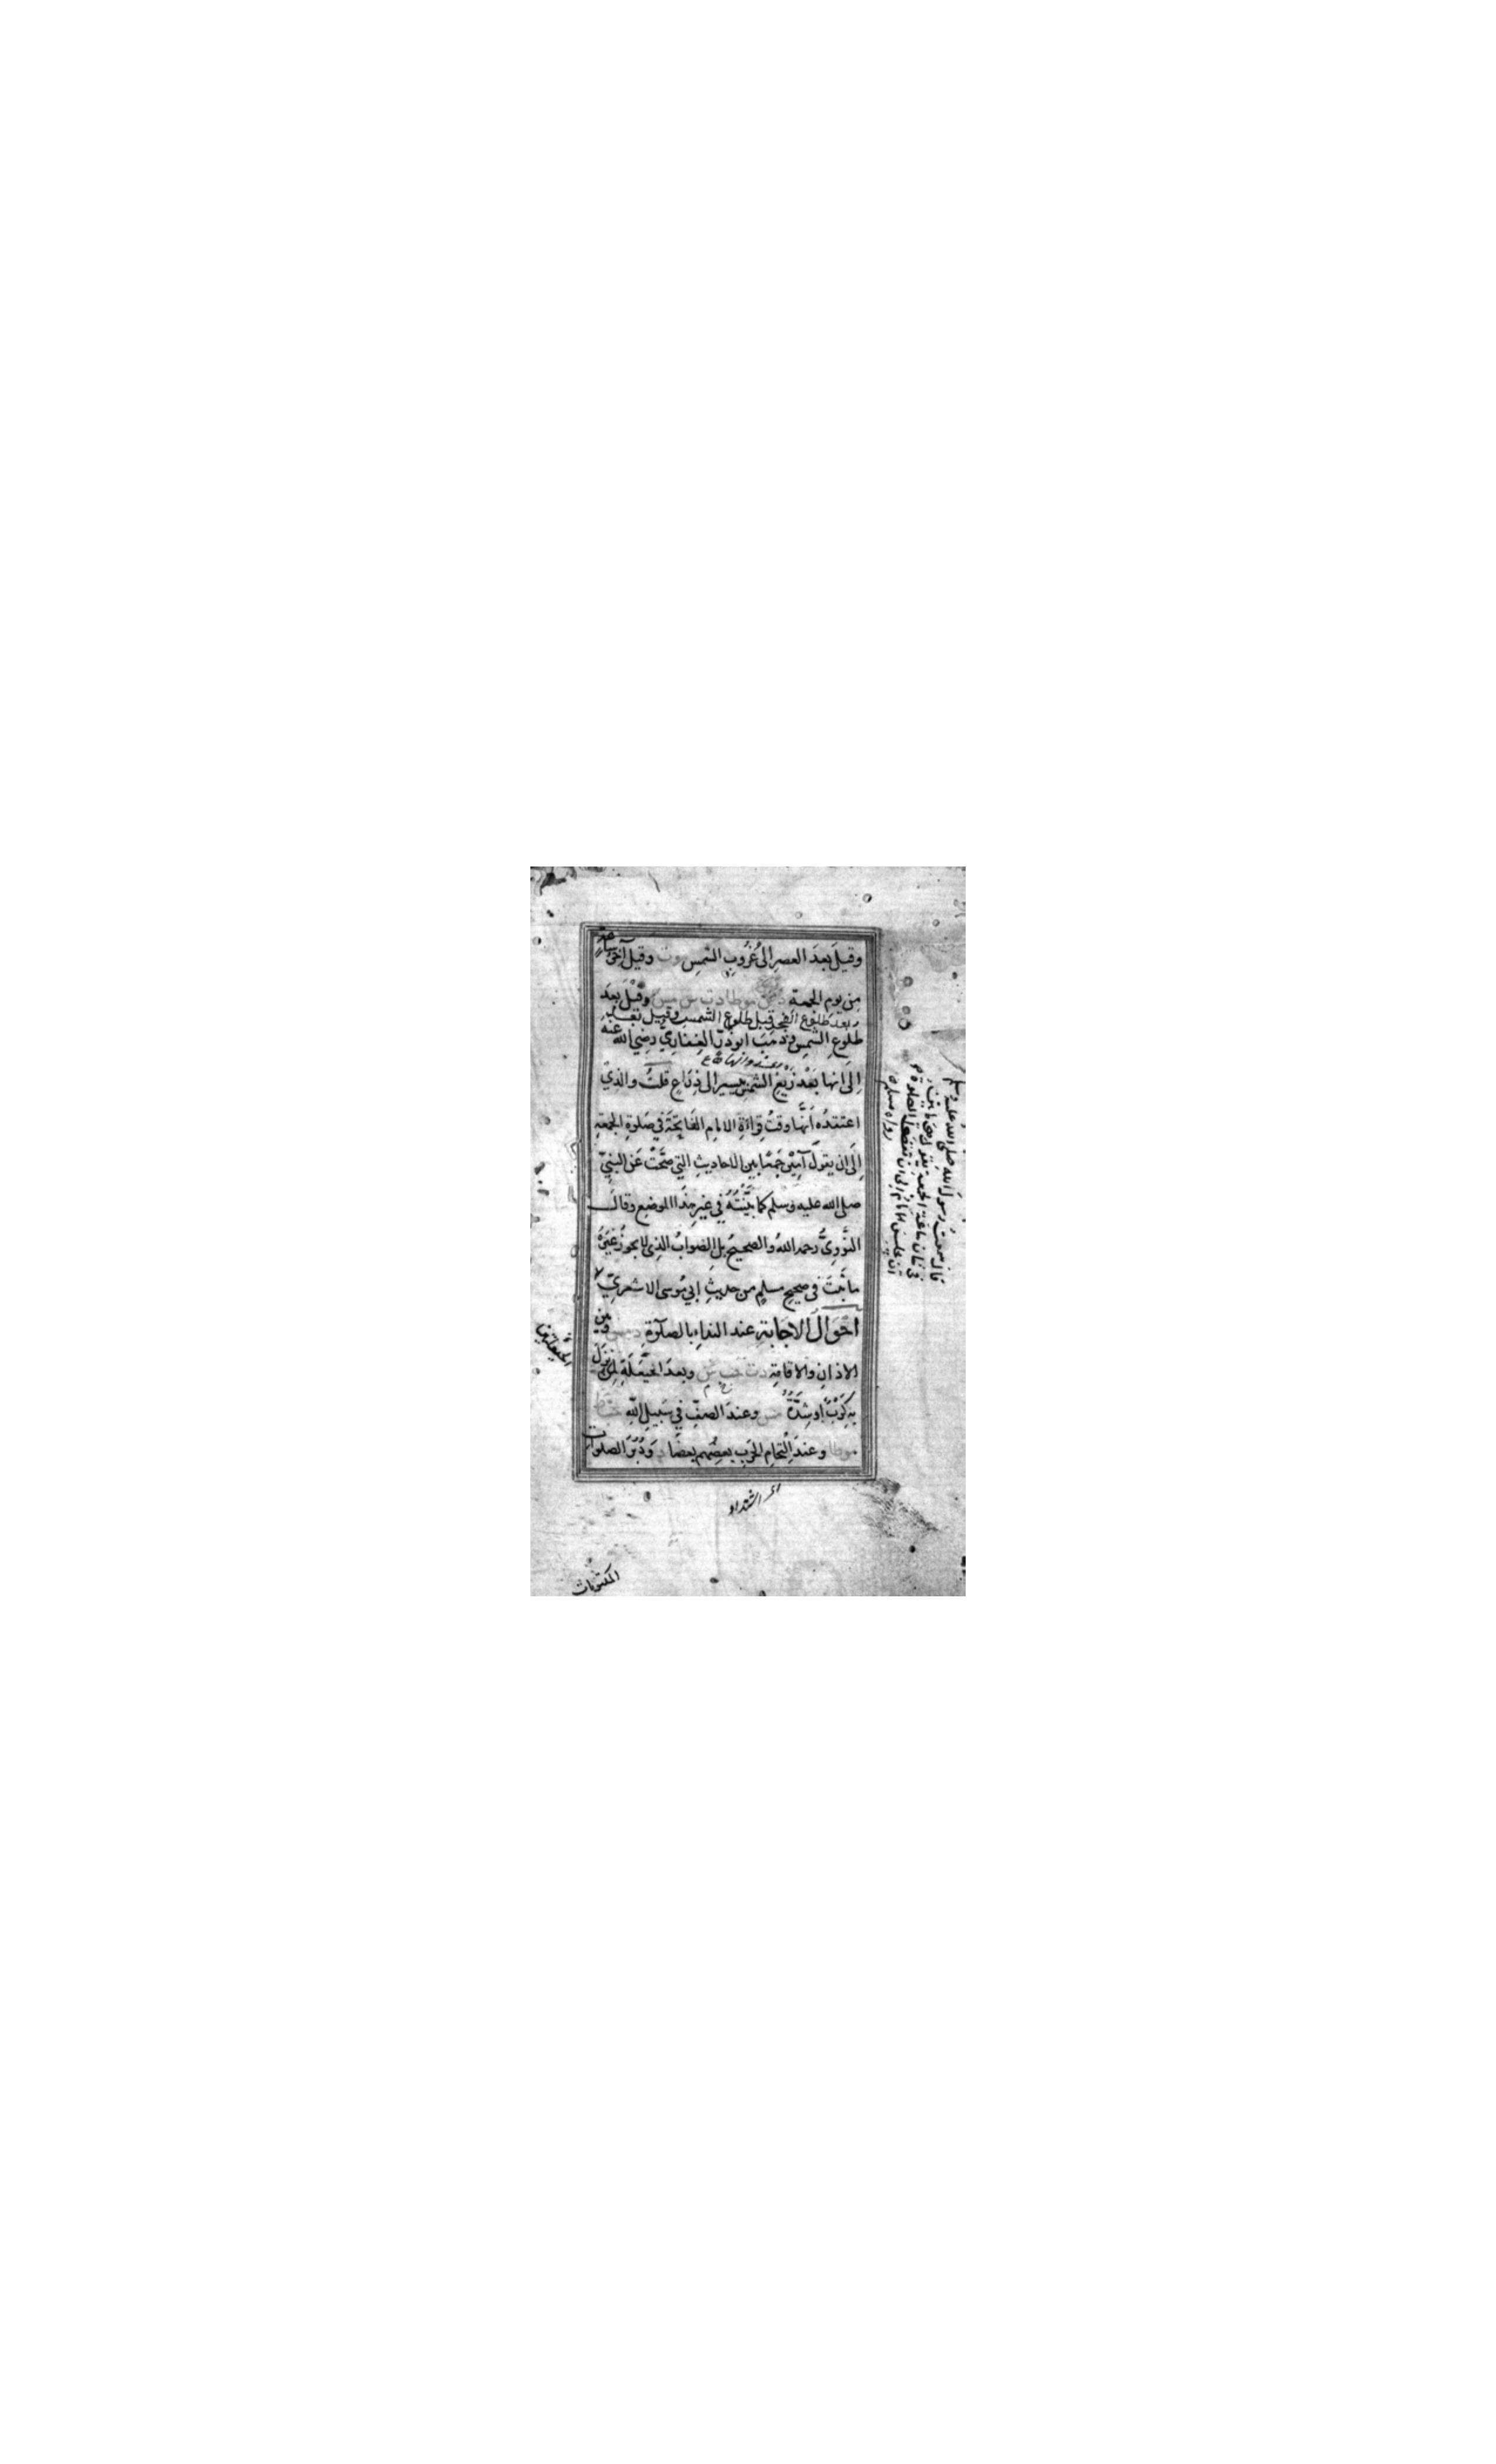 وقيلَ بعدَ العصرِ الى غُرُوبِ الشمسِ ت وقيل آخرُ ساعةٍ
مِن يومِ الجمعةِ د س موطا د ت س مس وقيْلَ بعدَ
وبعد طلوع الفجر قبل طلوع الشمس وقيل بعد
طلوعِ الشمسِ وذهَبَ ابوذرّ الغِفاريُّ رضي الله عنه
اِلَى انها بَعْدَ زَيْغِ الشمسِ بيسيرٍ الى ذِرَاعٍ قلتُ والذي
اعتقدُه اَنَّها وقتُ قِراءَةِ الامامِ الفَاتِحَةَ في صَلوةِ الجمعةِ
اِلَى اَن يقولَ آمِيْن جَمْعًا بين الاحاديثِ التي صَحَّتْ عَن النبيّ
صلى الله عليه وسلم كما بَيَّنْتُهُ في غيرِ هذَا الموضعِ وقالَ
النَّوَوِيُّ رحمه اللهُ والصحيحُ بلِ الصَّوابُ الذي لا يجوزُ غيرُهُ
ما ثَبَتَ في صحيحِ مسلمٍ من حديثِ ابي مُوسى الاشعريِّ
احْوَالُ الاجابةِ عند النداءِ بالصلٰوةِ د مس وبين
الاذانِ والاقامةِ د ت س حب ص وبعدَ الحَيْعَلَةِ لِمَن نَزَلَ
بهِ كَرْبٌ اَو شِدَّةٌ مس وعندَ الصفِّ في سَبيلِ اللّٰهِ حب ط
موطا وعندَ اِلْتحامِ الحَربِ بعضُهم بعضًا د وَدُبُرَ الصلواتِ
قال سمعت رسول الله صلى الله عليه وسلم
يقول هي ما بين
ان يجلس الامام الى ان تقضى الصلوة
رواه مسلم
الحيعلتين
اى اشتداد
المكتوبات